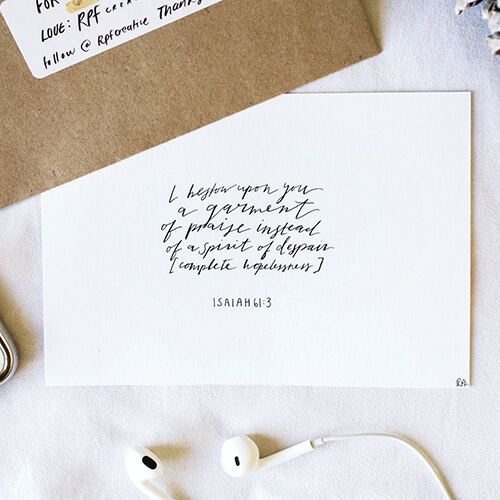 FOR
LOVE: RPF CREA
follow @ Rpfcreative Thank
I bestow upon you
a garment
of praise instead
of a spirit of despair
[complete hopelessness]
ISAIAH 61:3